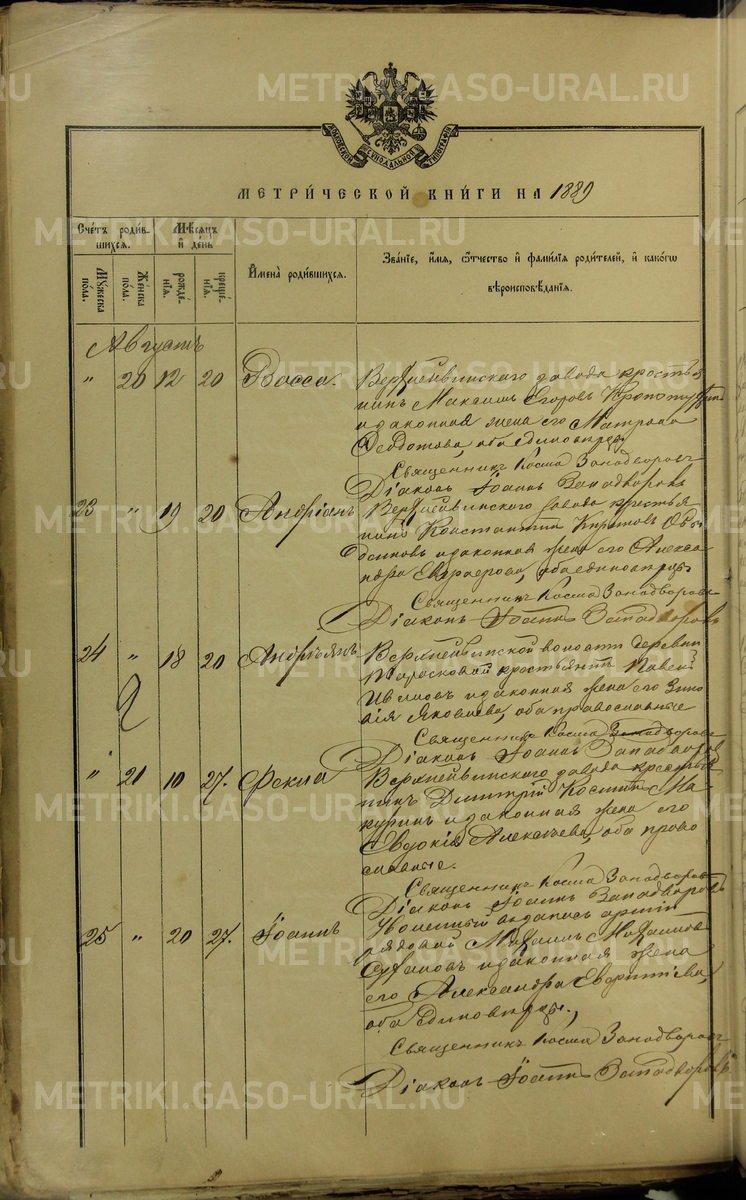 METRIKI.GASO-URAL.RU
МОСКОВСКОЙ СѴНОДАЛЬНОЙ ТИПОГРАФІИ
МЕТРИ́ЧЕСКОЙ КНИ́ГИ НА 1889
Сче́тъ роди́вшихся.
Мѣ́сяцъ и҆ день
И҆мена̀ роди́вшихся.
Зва́нїе, и҆́мя, ѻ҆́тчество и҆ фами́лїя роди́телей, и҆ како́гѡ вѣроисповѣ́данїя.
Мꙋ́жеска по́ла.
Же́нска по́ла.
рожде́нїя.
креще́нїя.
Августъ
" 20 12 20 Васса. Верхнейвинскаго завода крестья
нинъ Михаилъ Егоровъ
и законная жена его Матрона
Ѳеодотова, оба единоверцы
Священникъ Косма Западворовъ
Діаконъ Іоаннъ Западворовъ
23 " 19 20 Андріанъ Верхнейвинскаго завода крестья
нинъ Константинъ
и законная жена его Алекса
ндра оба единоверцы
Священникъ Косма Западворовъ
Діаконъ Іоаннъ Западворовъ
24 " 18 20 Андріянъ Верхнейвинской волости деревни
Тарасковой крестьянинъ Павелъ
Ивановъ и законная жена его Зино
вія Яковлева, оба православные
Священникъ Косма Западворовъ
Діаконъ Іоаннъ Западворовъ
" 21 10 27. Ѳекла Верхнейвинскаго завода крестья
нинъ Дмитрій Костинъ Ма
куринъ и законная жена его
Евдокія Алексѣева, оба право
славные.
Священникъ Косма Западворовъ
Діаконъ Іоаннъ Западворовъ
25 " 20 27. Іоаннъ запасъ арміи
рядовой Михаилъ Михаиловъ
и законная жена
его Александра
оба Единоверцы,
Священникъ Косма Западворовъ
Діаконъ Іоаннъ Западворовъ